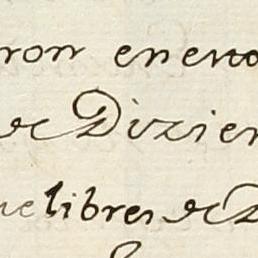 ron enero
de Dizien
ue libres de D